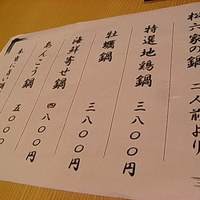 松六家の鍋 二人前より
特選地鶏鍋 三八〇〇円
牡蠣鍋 三八〇〇円
海鮮寄せ鍋 四八〇〇円
あんこう鍋 五〇〇〇円